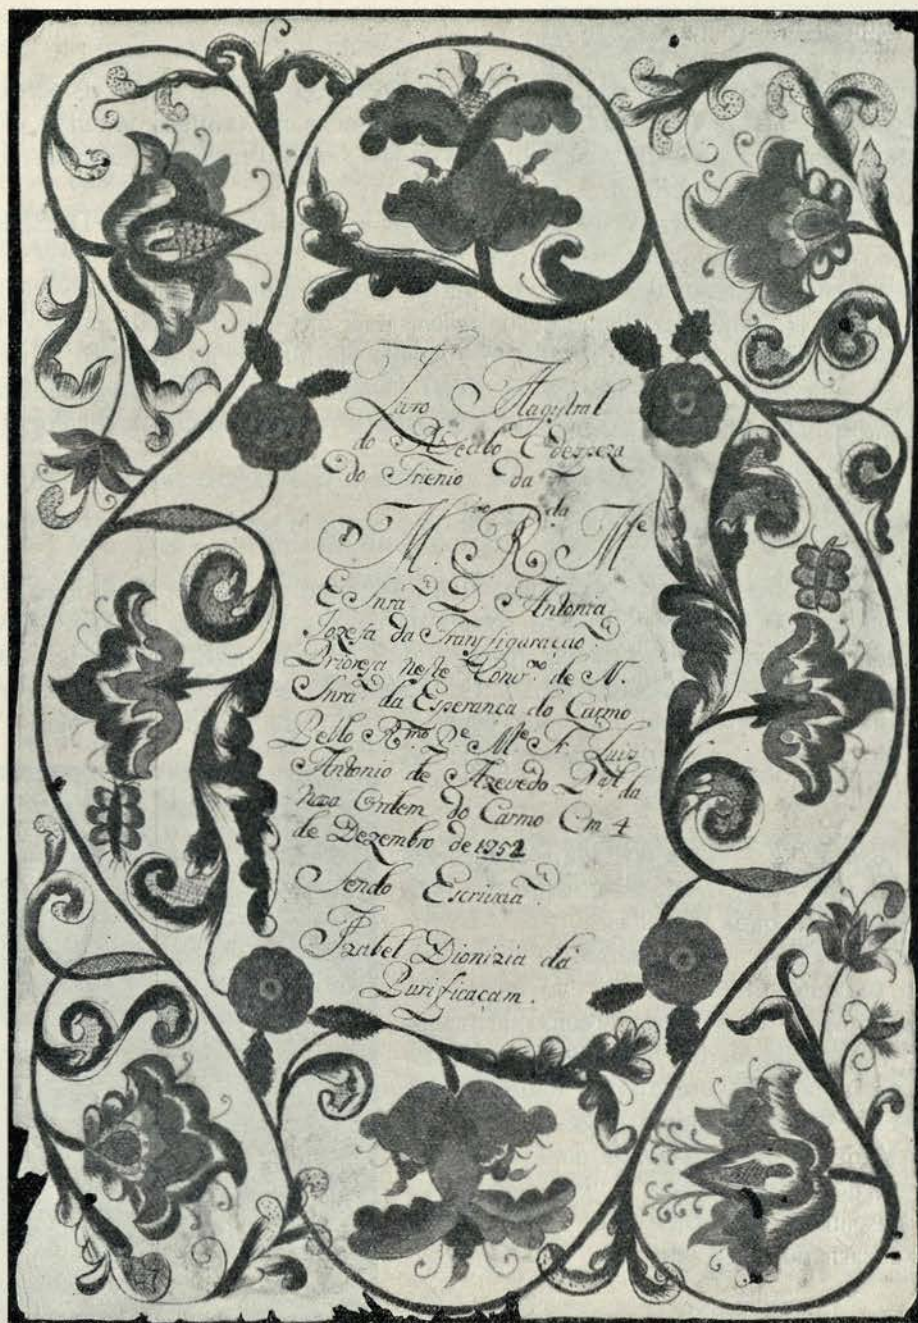 Livro Magistral
do Recibo E despeza
do Trienio da
M.to R.da M.e
E Snra D. Antonia
Jozefa da Transfiguração
Prioreza neste Conv.to de N.
Snra da Esperanca do Carmo
Pello R.mo P.e M.e Fr. Luiz
Antonio de Azevedo da
Ordem do Carmo Em 4
de Dezembro de 1752
Sendo Escrivaã
Izabel Dionizia da
Purificacam.